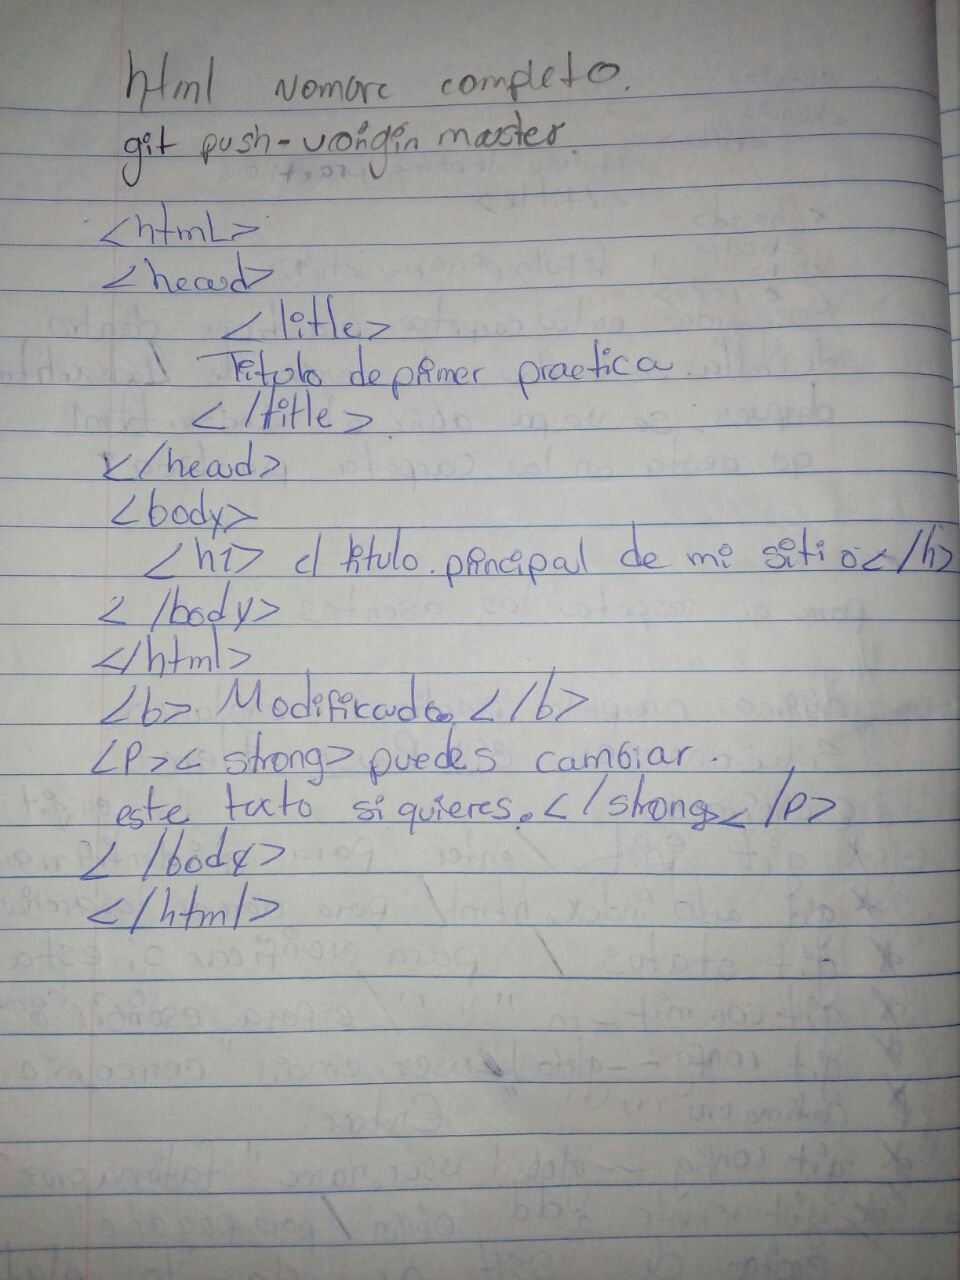 html Nombre completo.
git push -u origin master
<html>
<head>
<title>
Titulo de primer practica
</title>
</head>
<body>
<h1> el titulo principal de mi sitio</h>
</body>
</html>
<b> Modificado </b>
<P>< strong> puedes cambiar.
este texto si quieres.</strong>< /P>
</body>
</html>